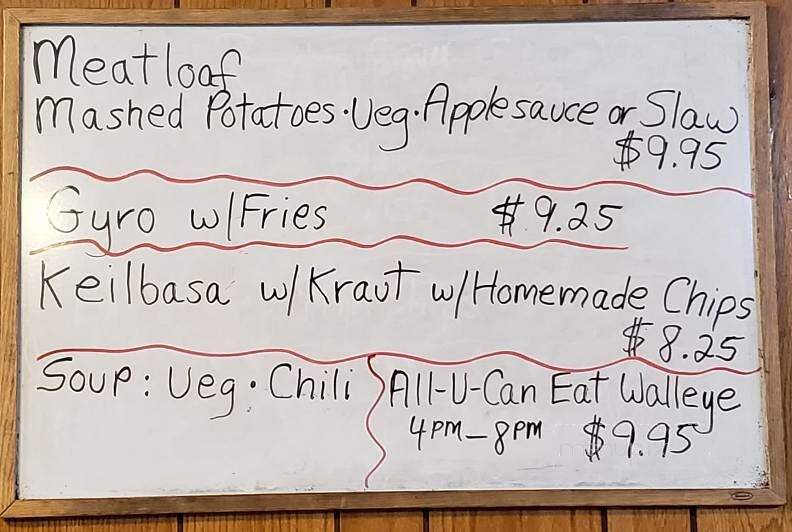 Meatloaf
Mashed Potatoes · Veg · Applesauce or Slaw
$9.95
Gyro w/Fries $9.25
Keilbasa w/Kraut w/Homemade Chips
$8.25
Soup: Veg · Chili
All-U-Can Eat Walleye
4PM - 8PM $9.95